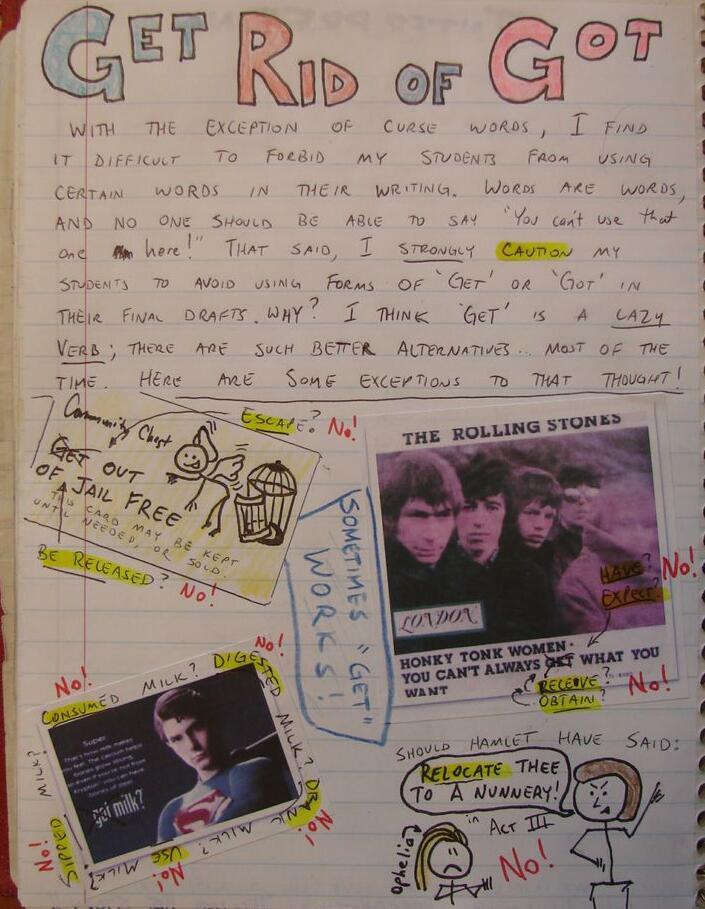 GET RID OF GOT
WITH THE EXCEPTION OF CURSE WORDS, I FIND
IT DIFFICULT TO FORBID MY STUDENTS FROM USING
CERTAIN WORDS IN THEIR WRITING. WORDS ARE WORDS,
AND NO ONE SHOULD BE ABLE TO SAY "You can't use that
one here!" THAT SAID, I STRONGLY CAUTION MY
STUDENTS TO AVOID USING FORMS OF 'GET' OR 'GOT' IN
THEIR FINAL DRAFTS. WHY? I THINK 'GET' IS A LAZY
VERB; THERE ARE SUCH BETTER ALTERNATIVES... MOST OF THE
TIME. HERE ARE SOME EXCEPTIONS TO THAT THOUGHT!
Community Chest
ESCAPE? No!
GET OUT
OF JAIL FREE
THIS CARD MAY BE KEPT
UNTIL NEEDED, OR SOLD.
BE RELEASED? No!
SOMETIMES "GET"
WORKS!
THE ROLLING STONES
LONDON
HAVE? No!
EXPECT?
HONKY TONK WOMEN
YOU CAN'T ALWAYS GET WHAT YOU
WANT
RECEIVE? No!
OBTAIN?
No!
CONSUMED MILK? DIGESTED MILK? No!
DRANK MILK? No!
USE MILK? No!
SIPPED MILK? No!
Super.
That's how milk makes
you feel. The calcium helps
bones grow strong,
so even if you're not from
Krypton you can have
bones of steel.
got milk?
SHOULD HAMLET HAVE SAID:
RELOCATE THEE
TO A NUNNERY!
in Act III
Ophelia
No!